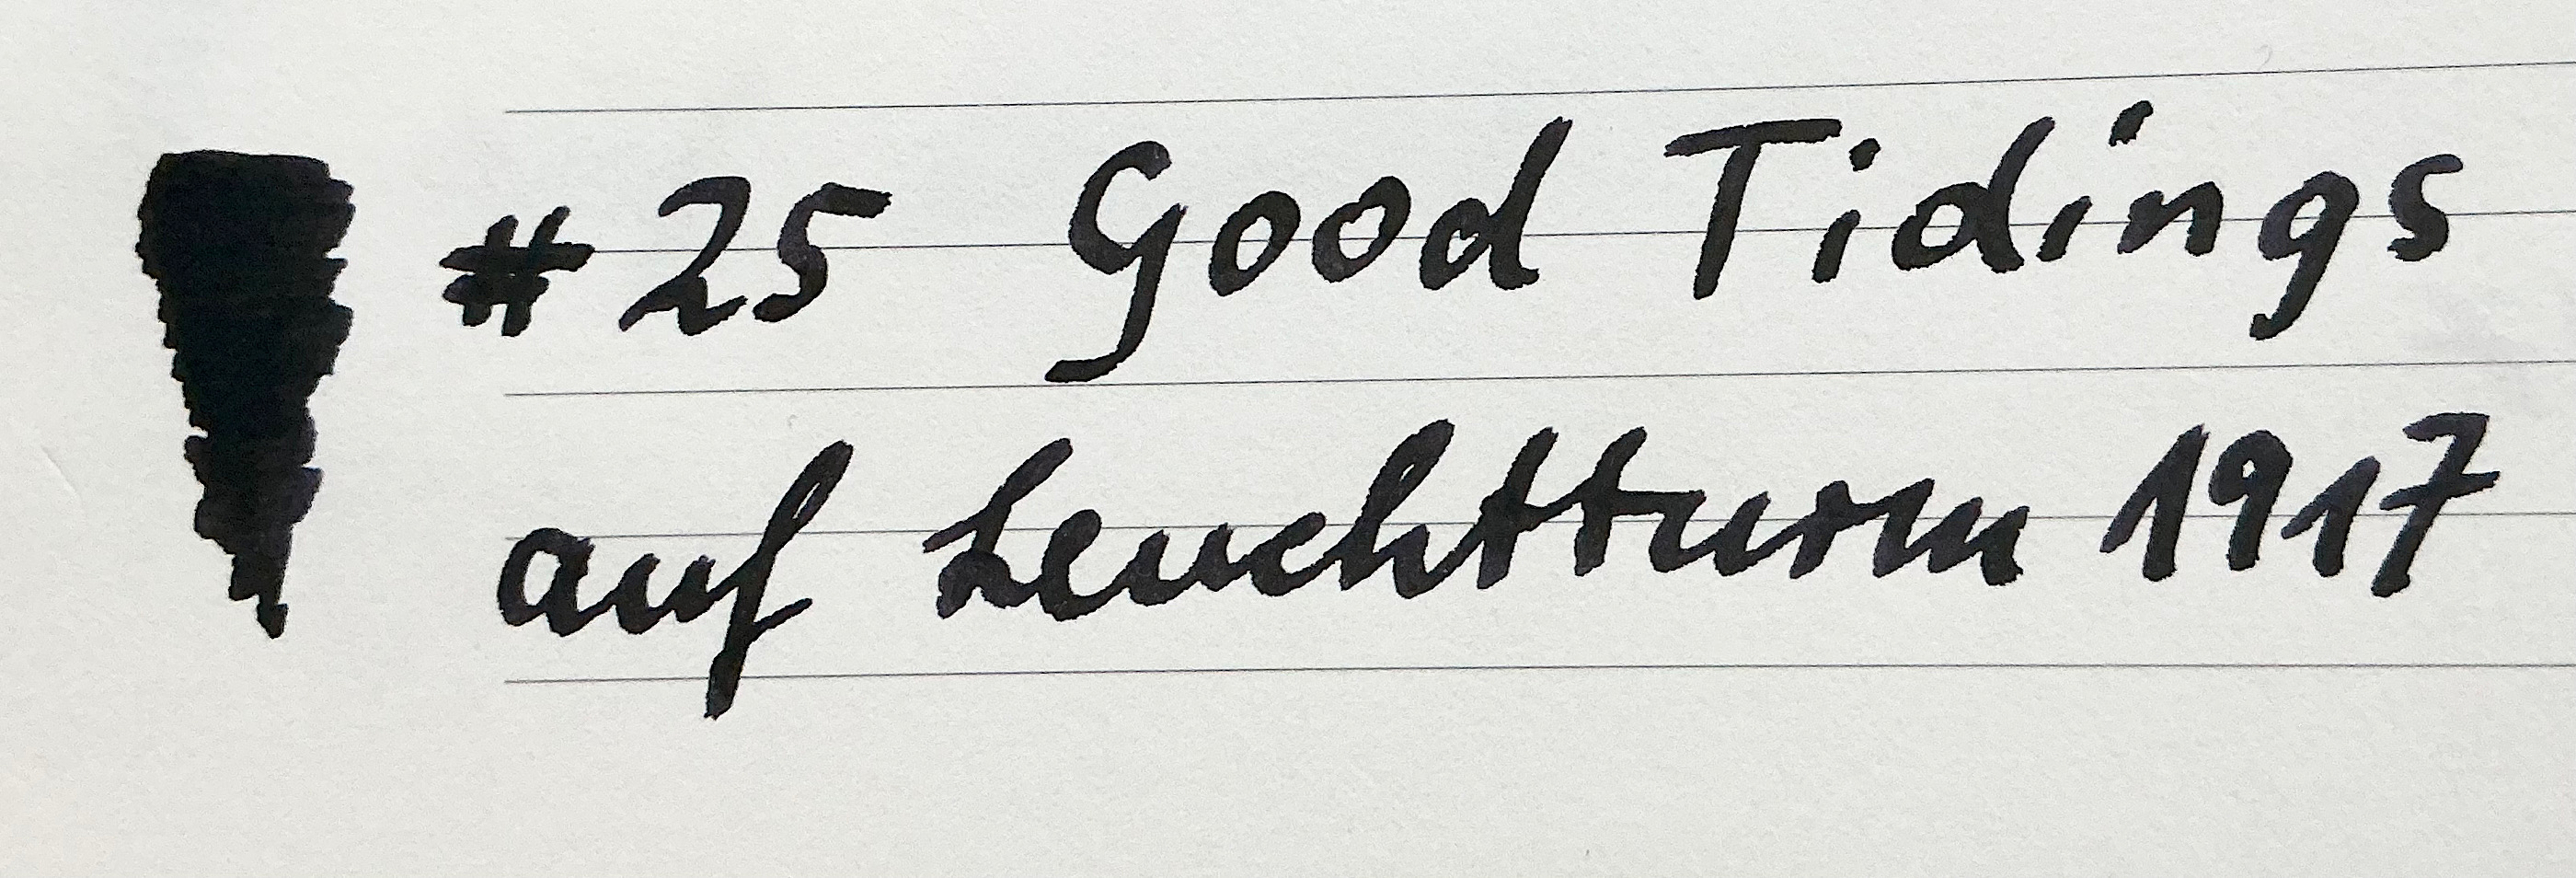 #25 Good Tidings
auf Leuchtturm 1917